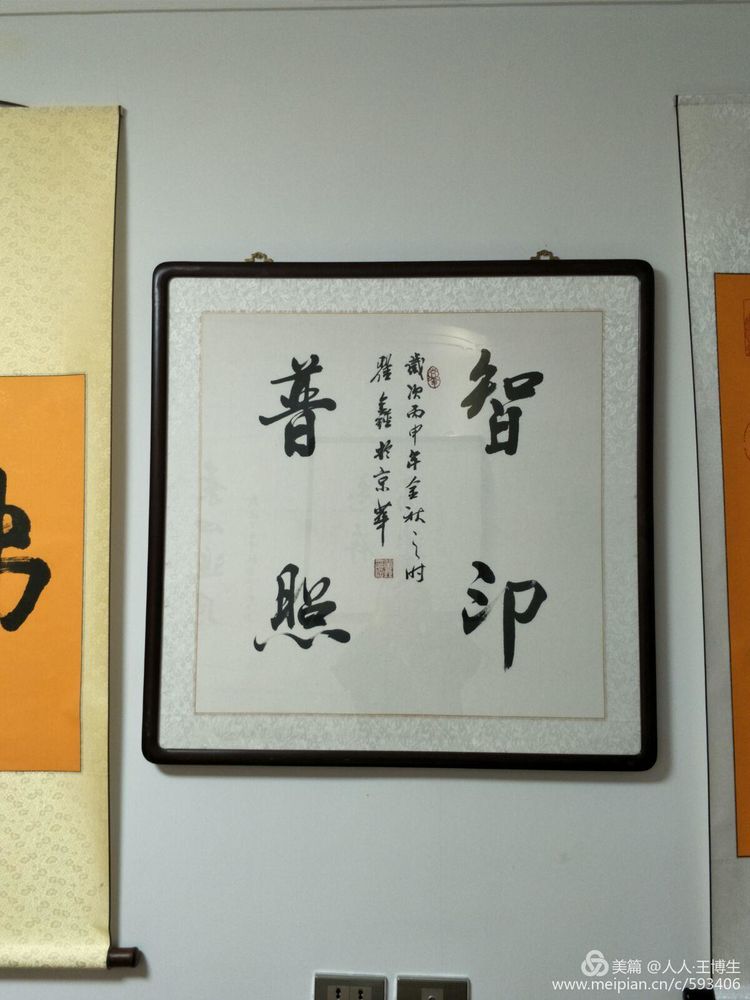 智印
普照
歲次丙申年金秋之时
瞿鑫於京華
美篇 @人人·王博生
www.meipian.cn/c/593406